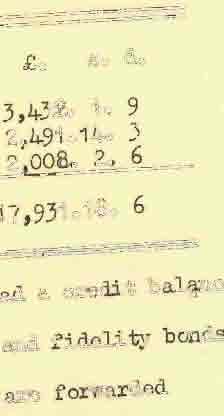 £. s. d.
3,432. 1. 9
2,491.14. 3
2,008. 2. 6
17,931.18. 6
ed a credit balanc
and fidelity bonds
are forwarded